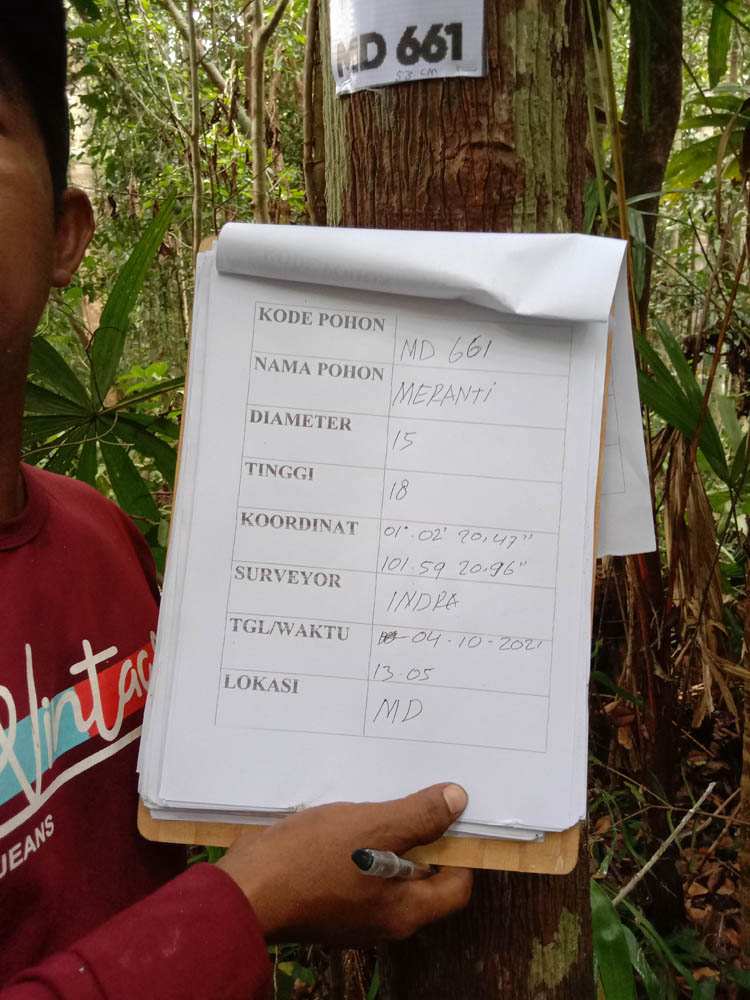 MD 661
53 CM
KODE POHON MD 661
NAMA POHON MERANTi
DIAMETER 15
TINGGI 18
KOORDINAT 01°.02' 20,47"
101.59 20.96"
SURVEYOR INDRA
TGL/WAKTU 04-10-2021
13.05
LOKASI MD
Vintage
JEANS